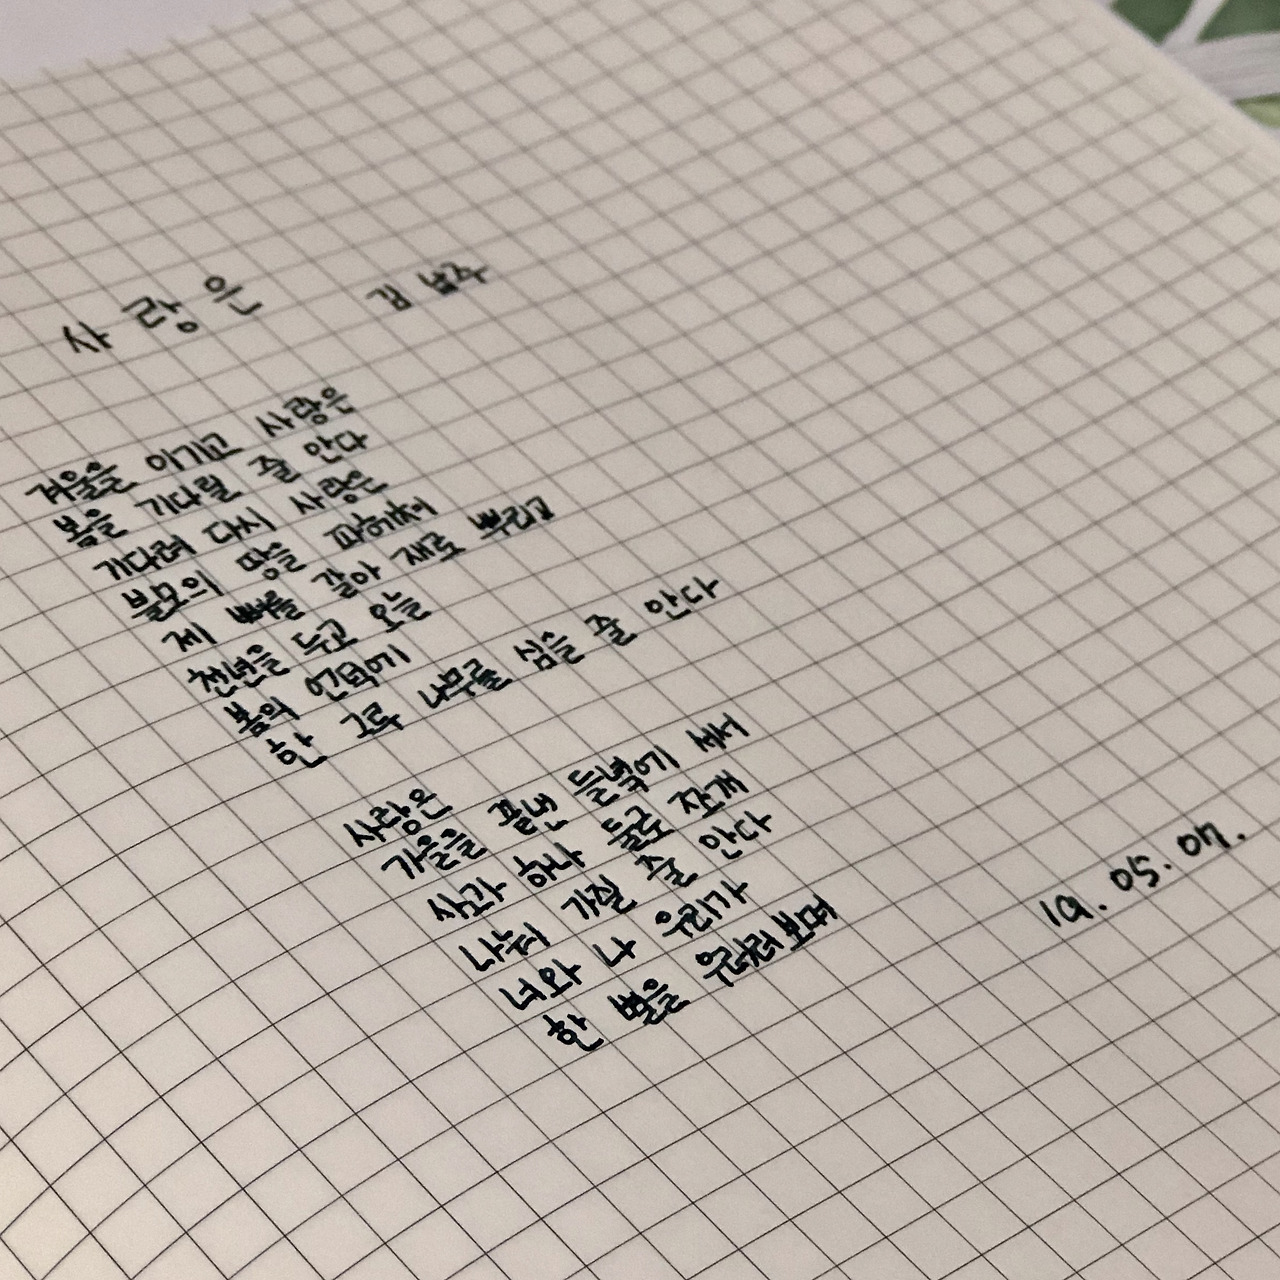 사랑은 김남주
겨울을 이기고 사랑은
봄을 기다릴 줄 안다
기다려 다시 사랑은
불모의 땅을 파헤쳐
제 뼈를 갈아 재로 뿌리고
천년을 두고 오늘
봄의 언덕에
한 그루 나무를 심을 줄 안다
사랑은
가을을 끝낸 들녘에 서서
사과 하나 둘로 쪼개
나눠 가질 줄 안다
너와 나 우리가
한 별을 우러러보며
19. 05. 07.